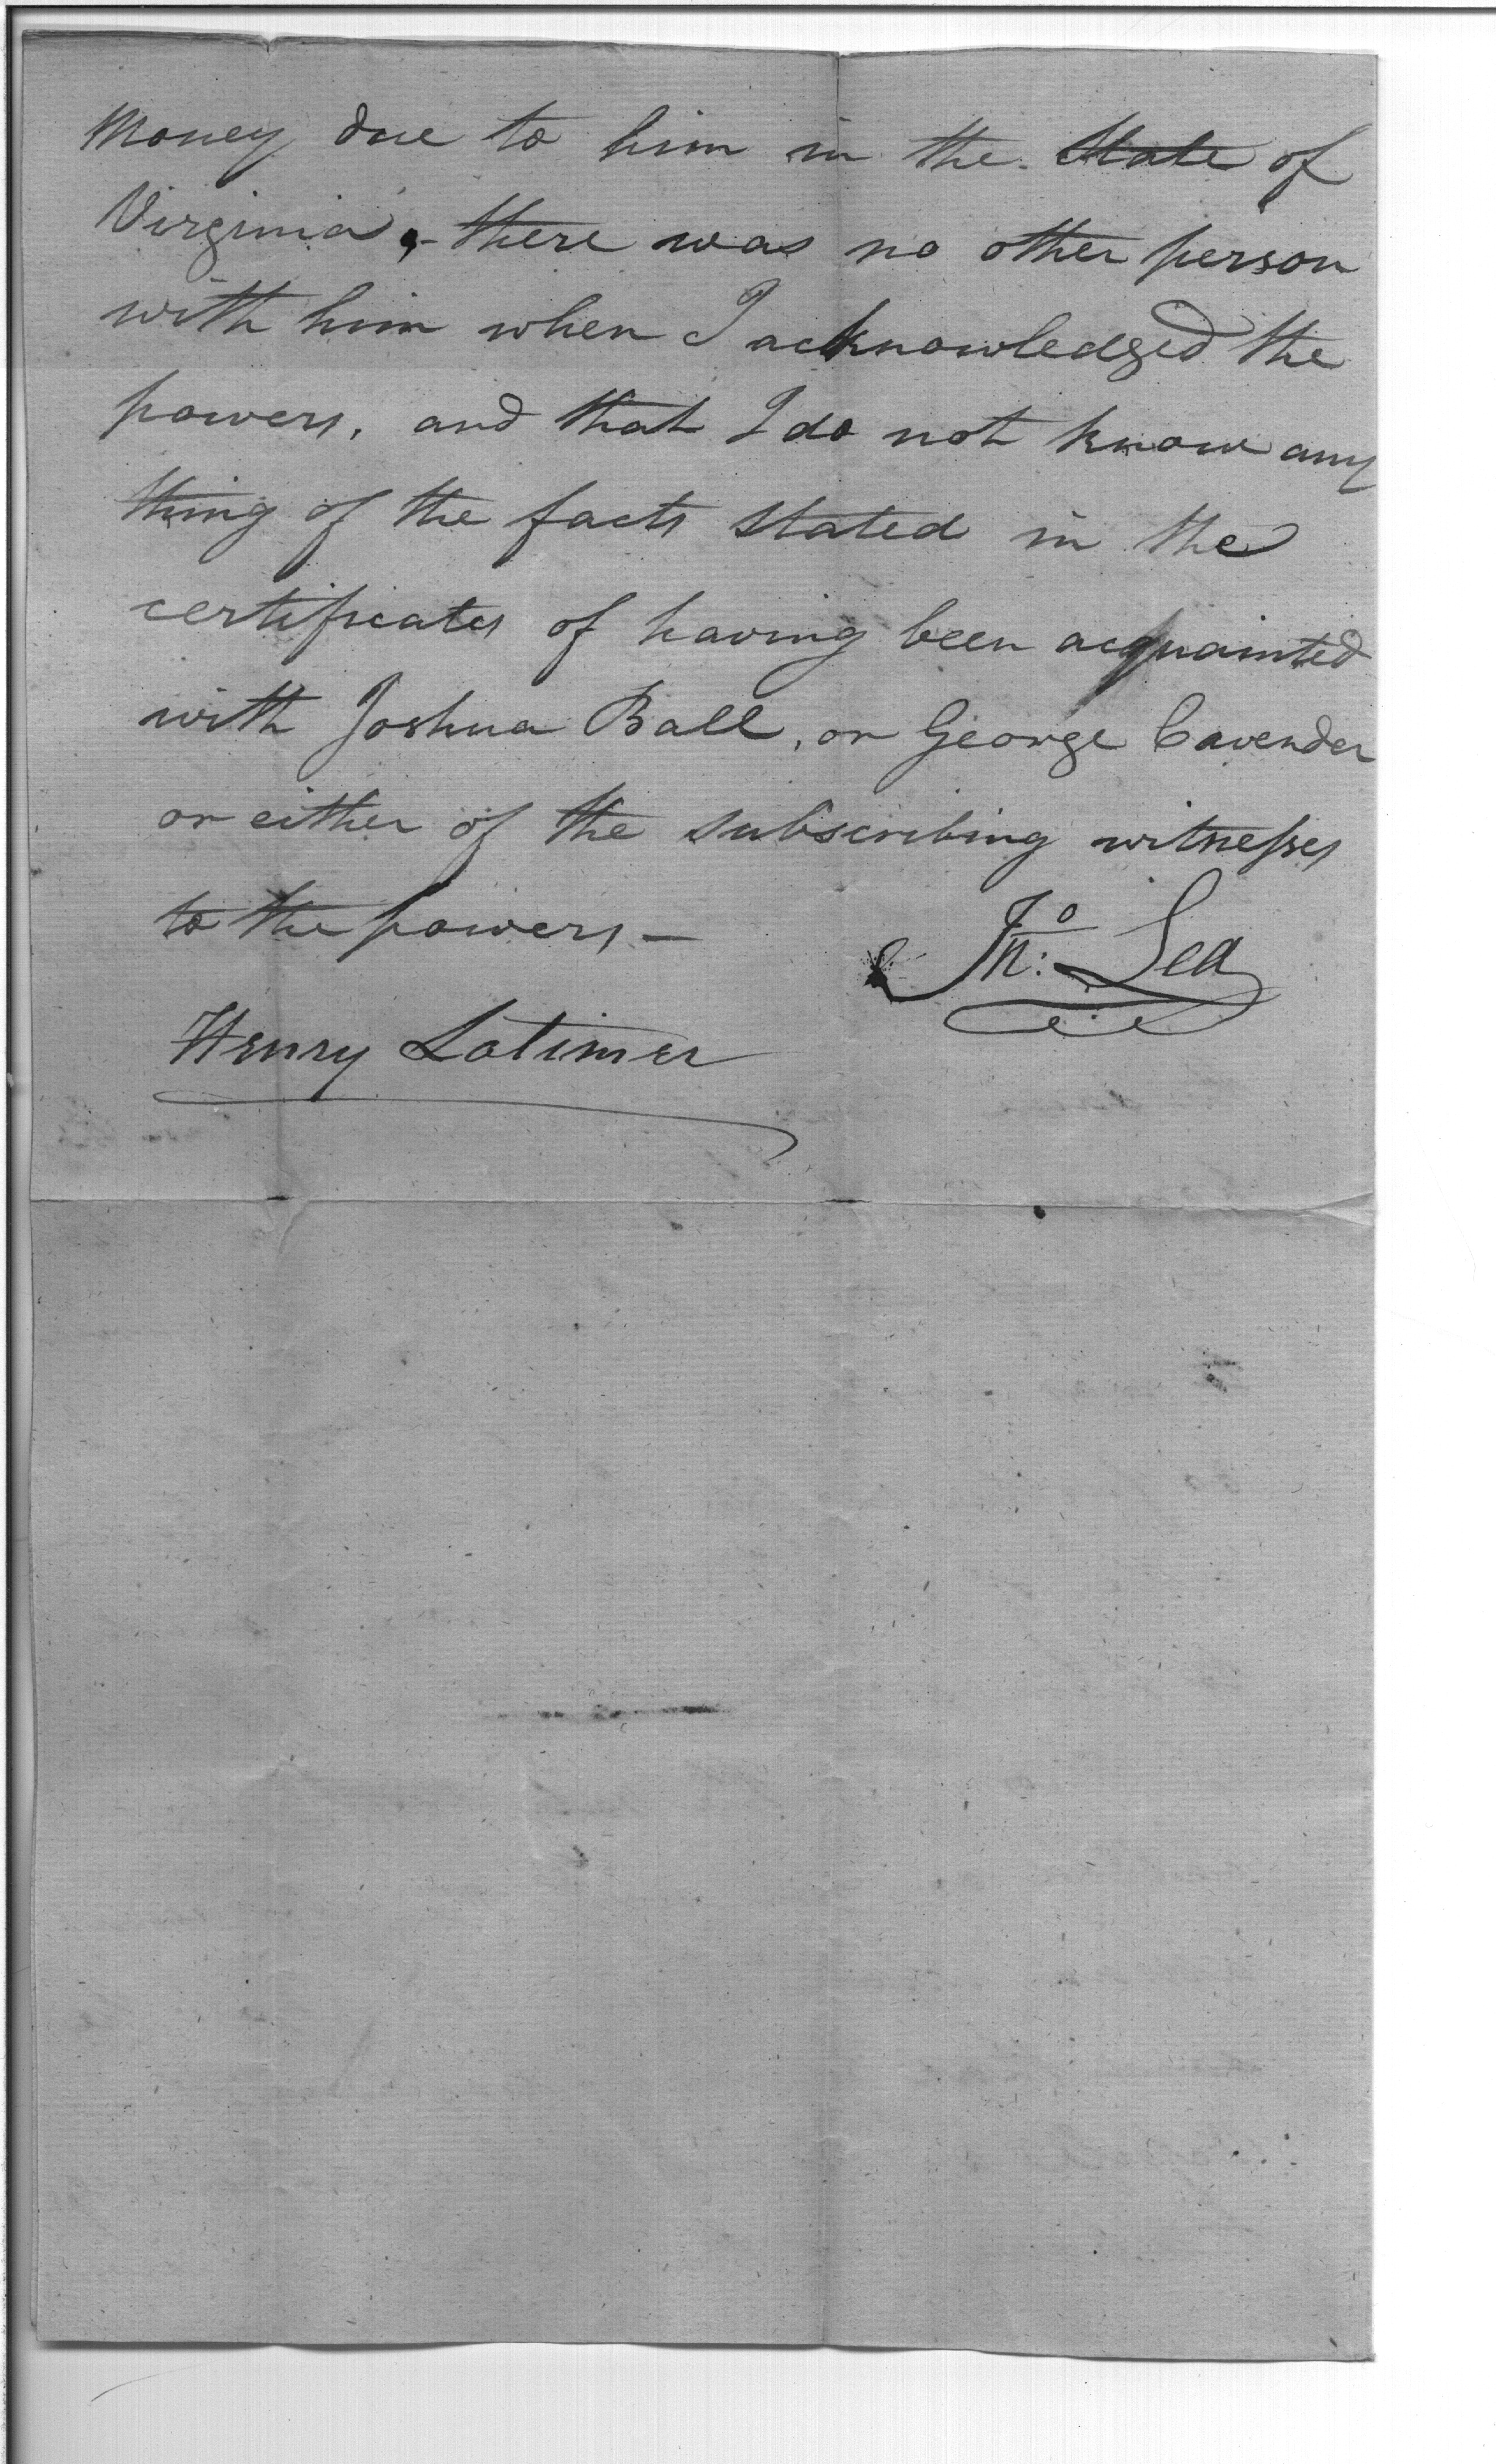 Money due to him in the State of
Virginia, - there was no other person
with him when I acknowledged the
powers, and that I do not know any
thing of the facts stated in the
certificates of having been acquainted
with Joshua Ball, or George Cavender
or either of the subscribing witnesses
to the powers —
Jno: Lea
Henry Latimer